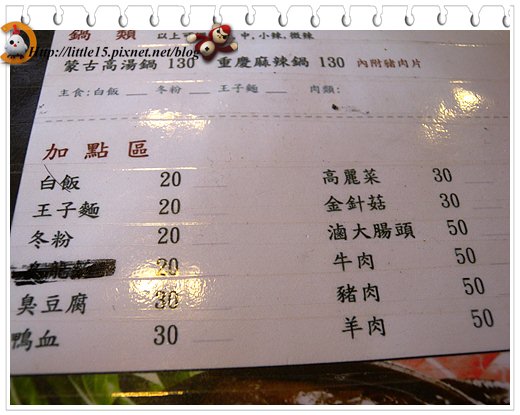 Http://little15.pixnet.net/blog
鍋 類 以上 中,小辣,微辣
蒙古高湯鍋 130 重慶麻辣鍋 130 內附豬肉片
主食:白飯 __ 冬粉 __ 王子麵 __ 肉類:
加 點 區
白飯 20 高麗菜 30
王子麵 20 金針菇 30
冬粉 20 滷大腸頭 50
20 牛肉 50
臭豆腐 30 豬肉 50
鴨血 30 羊肉 50